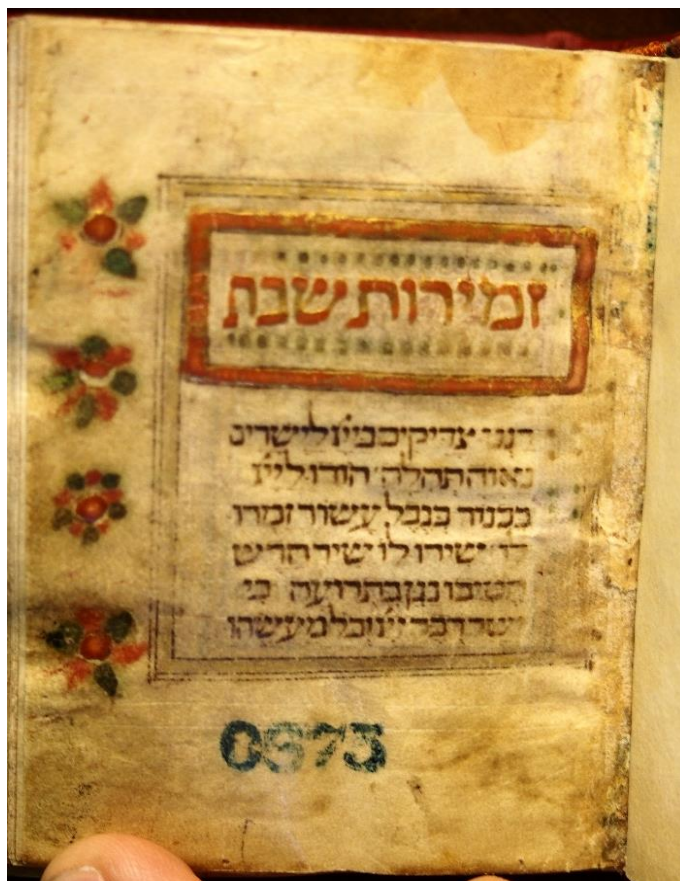 זמירות שבת
רננו צדיקים ביי לישרים
נאוה תהלה הודו ליי
בכנור בנבל עשור זמרו
לו שירו לו שיר חדש
היטיבו נגן בתרועה כי
ישר דבר יי וכל מעשהו
0673